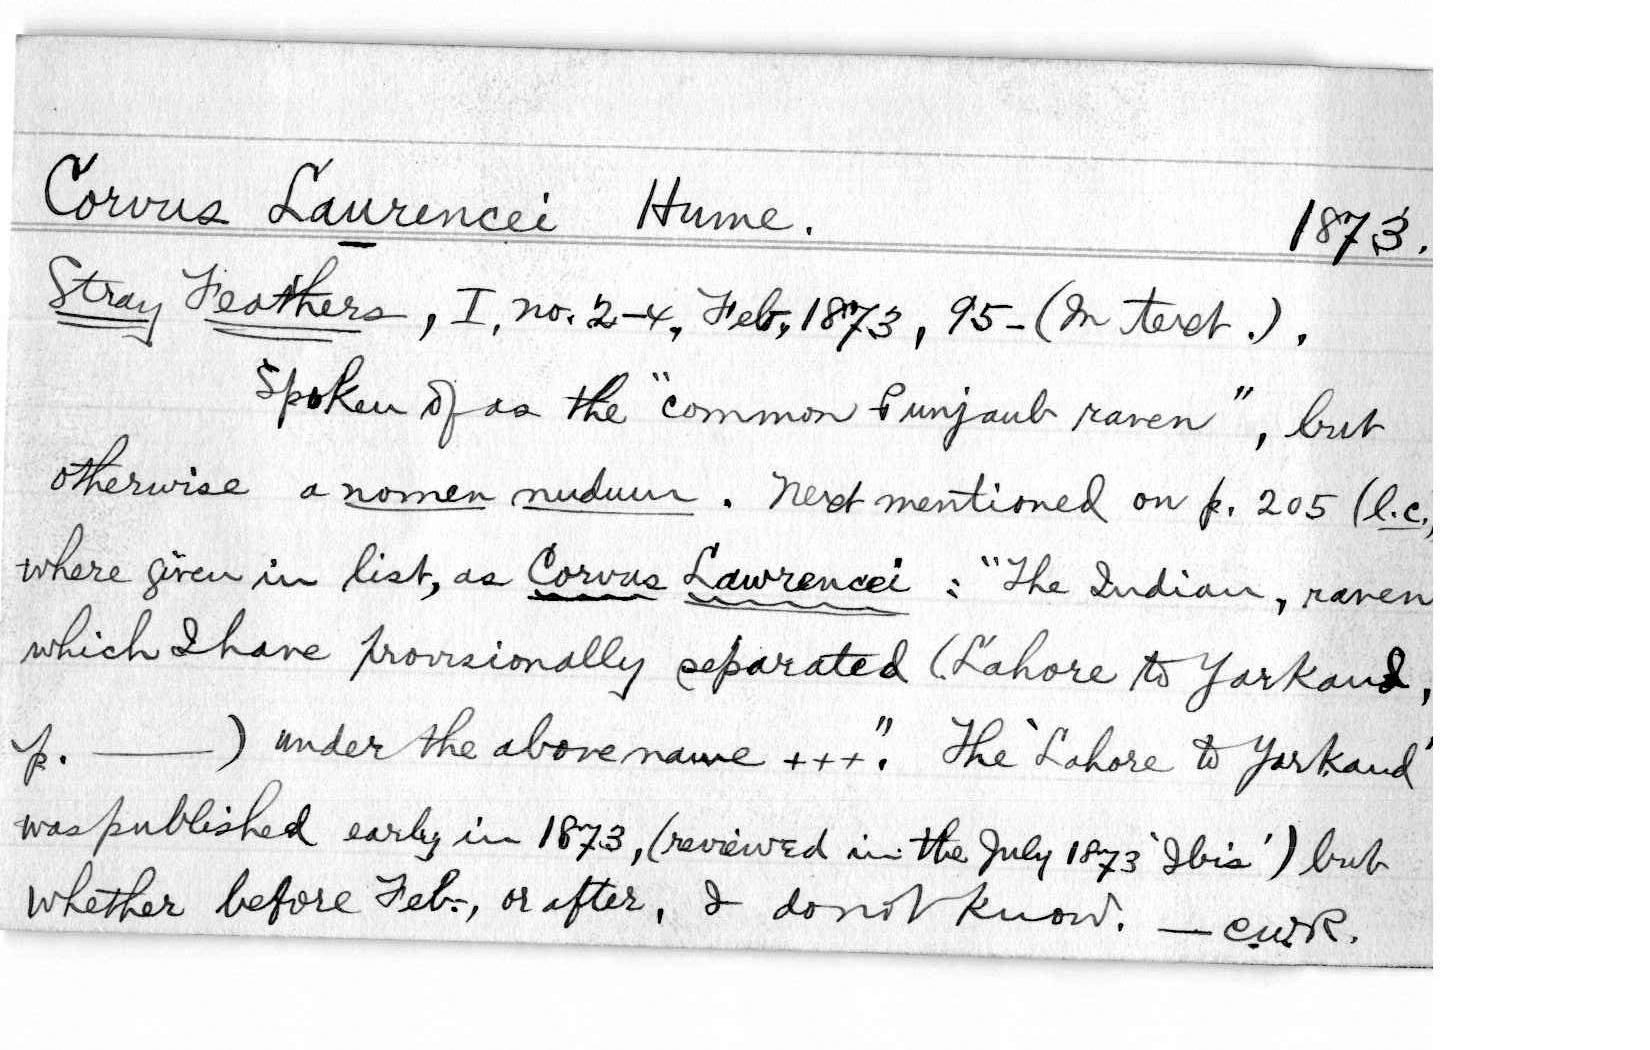 Corvus Laurencei Hume. 1873.
Stray Feathers, I, no. 2-4, Feb, 1873, 95- (In text.),
Spoken of as the "common Punjaub raven", but
otherwise a nomen nudum. Next mentioned on p. 205 (l.c.,
where given in list, as Corvus Lawrencei : "The Indian, raven
which I have provisionally separated (Lahore to Yarkand,
p. ——— ) under the above name +++". The 'Lahore to Yarkand'
was published early in 1873, (reviewed in the July 1873 'Ibis') but
whether before Feb., or after, I do not know. — C.W.R.